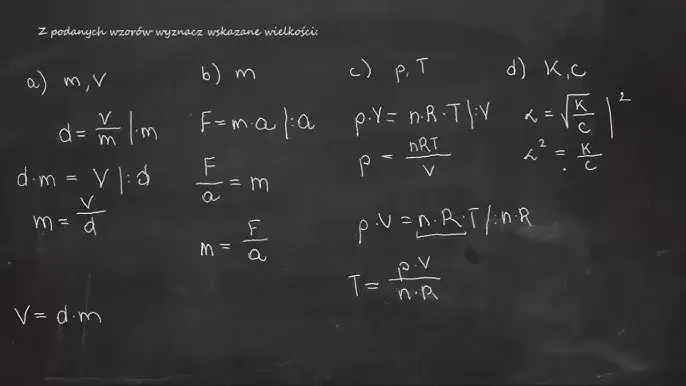 Z podanych wzorów wyznacz wskazane wielkości:
a) m, V
d = V/m |·m
d·m = V |:d
m = V/d
V = d·m
b) m
F = m·a |:a
F/a = m
m = F/a
c) p, T
p·V = n·R·T |:V
p = nRT/V
p·V = n·R·T |:n·R
T = p·V/n·R
d) K, c
α = √K/c |²
α² = K/c